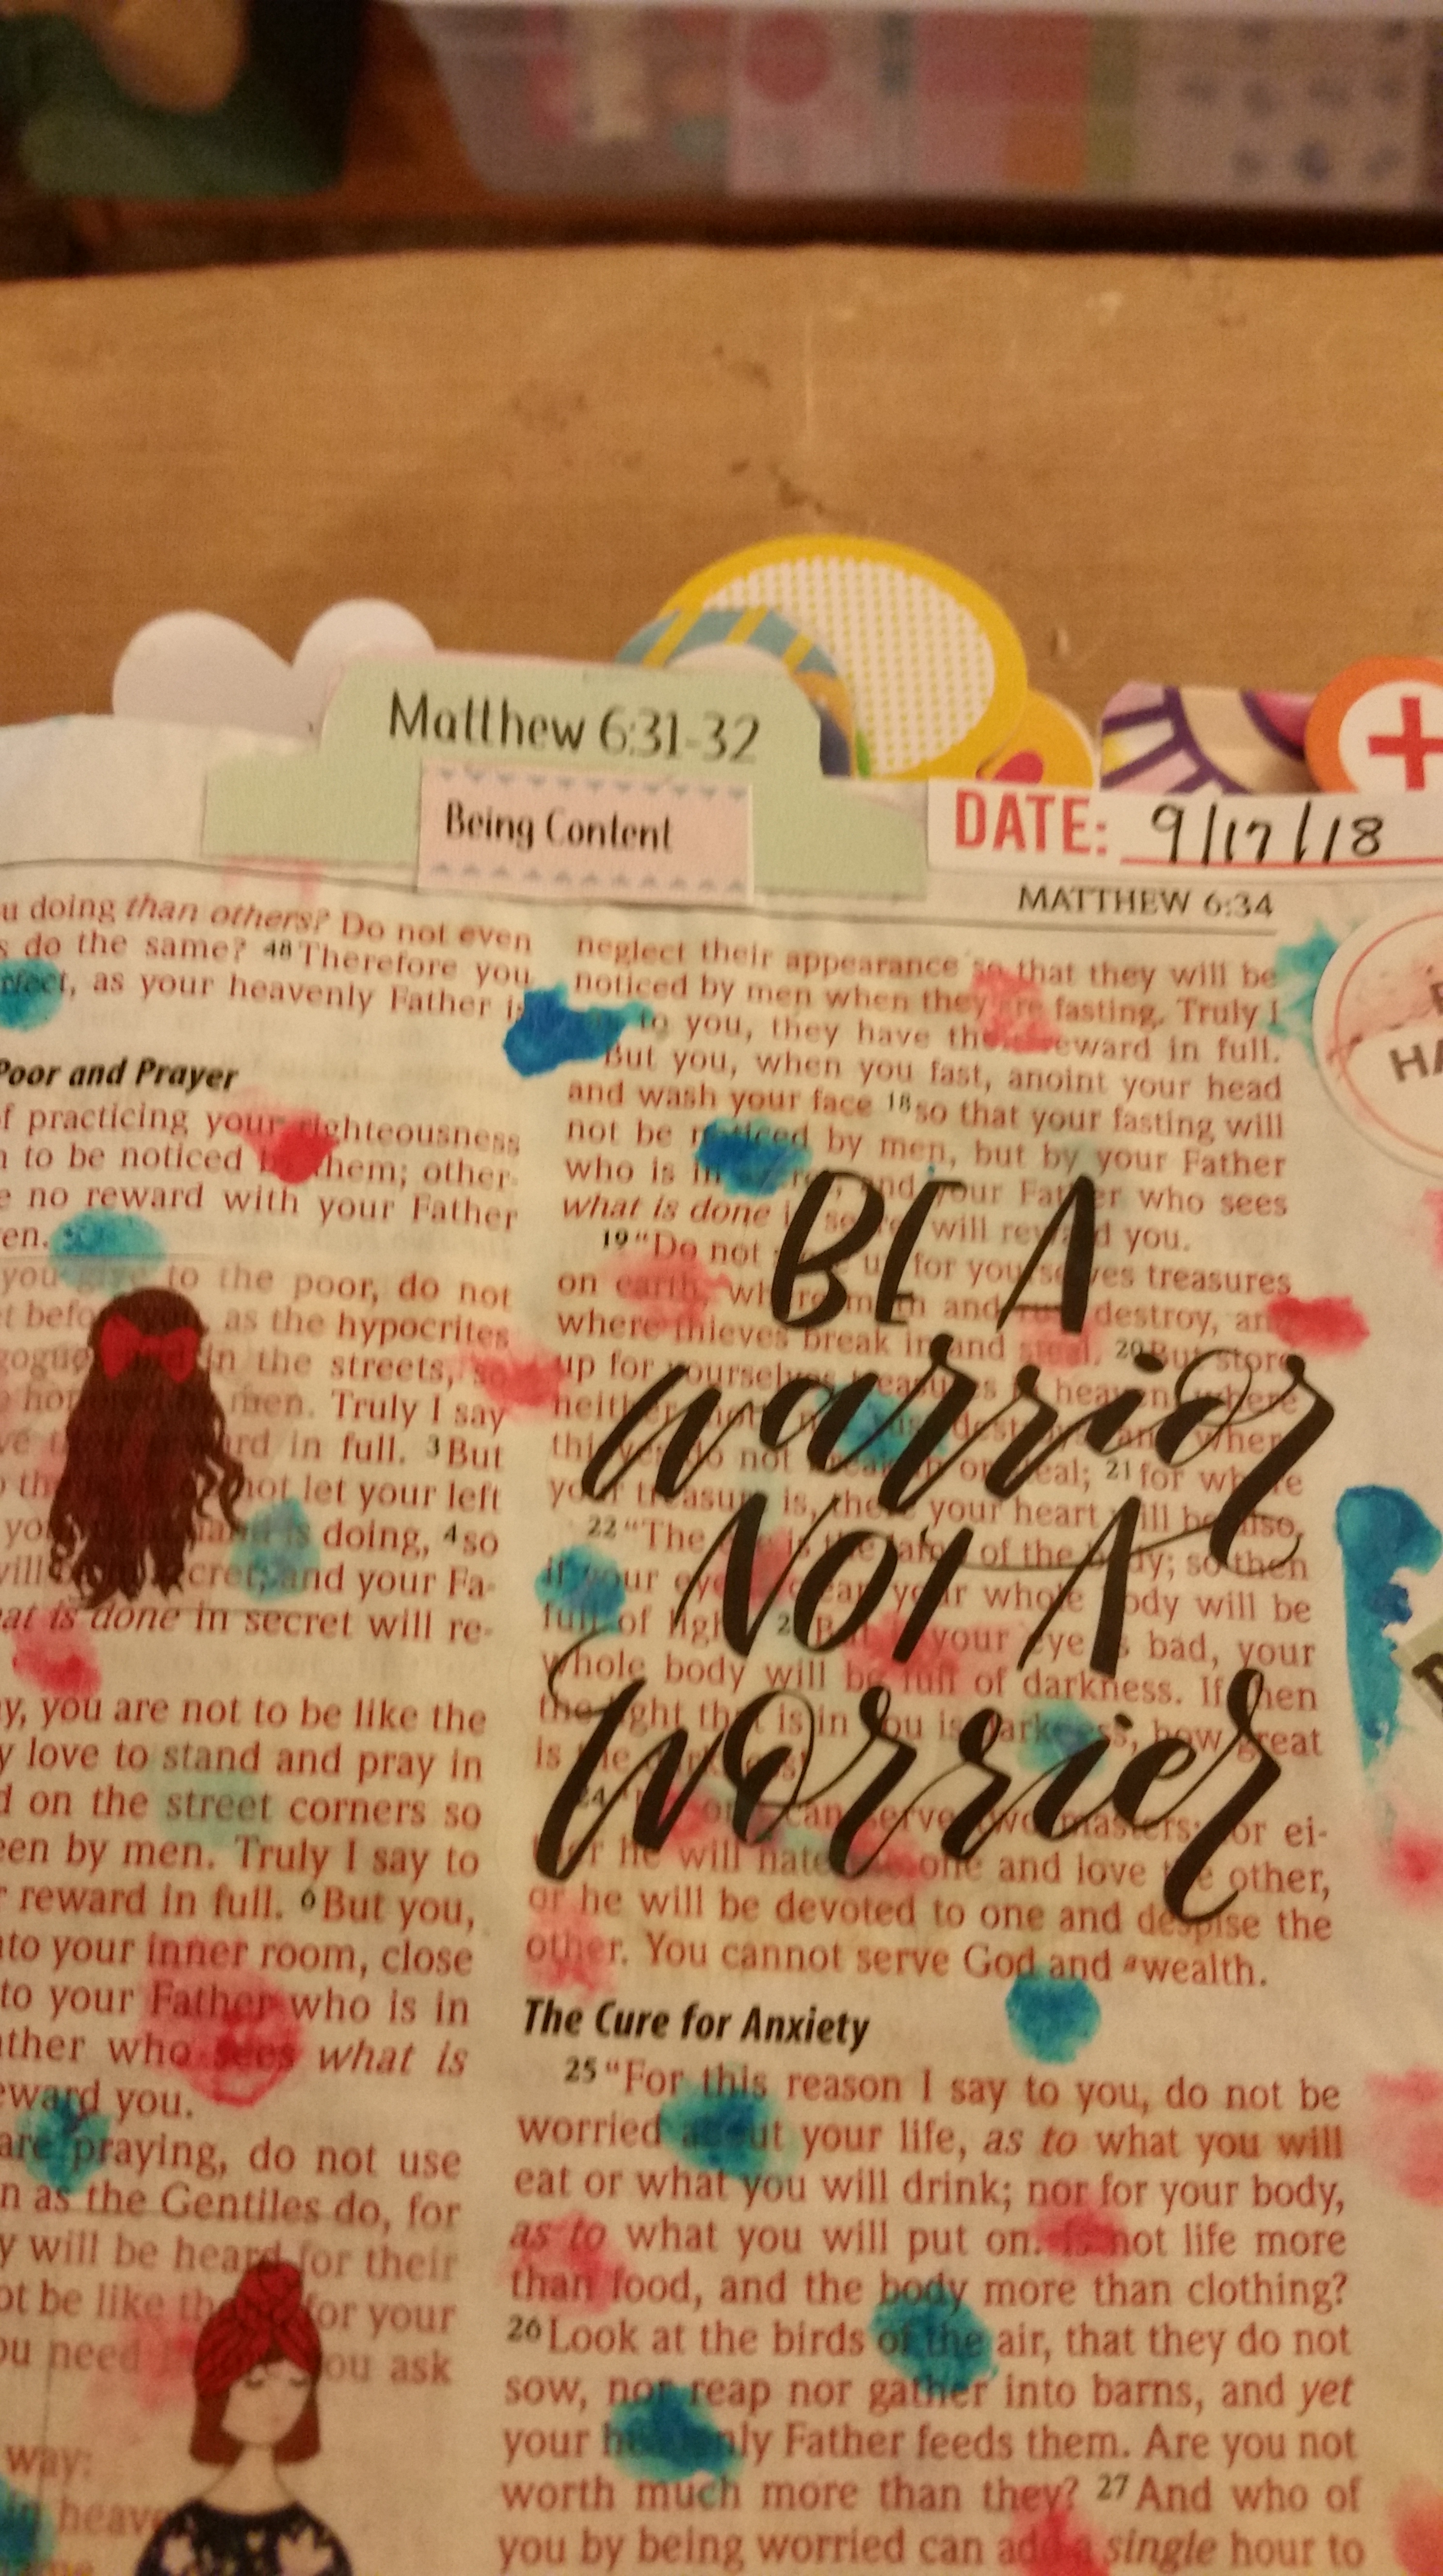 Matthew 6:31-32
Being Content
DATE: 9/17/18
MATTHEW 6:34
u doing than others? Do not even
do the same? 48 Therefore you
as your heavenly Father is
Poor and Prayer
of practicing your righteousness
to be noticed by them; other-
no reward with your Father
en.
you give to the poor, do not
as the hypocrites
and in the streets, so
men. Truly I say
in full. 3 But
not let your left
doing, 4 so
and your Fa-
is done in secret will re-
you are not to be like the
love to stand and pray in
on the street corners so
een by men. Truly I say to
reward in full. 6 But you,
your inner room, close
to your Father who is in
who sees what is
eward you.
are praying, do not use
as the Gentiles do, for
will be heard for their
be like for your
need you ask
way:
in heave
neglect their appearance so that they will be
noticed by men when they are fasting. Truly I
to you, they have their reward in full.
But you, when you fast, anoint your head
and wash your face 18 so that your fasting will
not be noticed by men, but by your Father
who is in and your Father who sees
what is done will reward you.
19 "Do not up for yourselves treasures
on earth, where moth and destroy, and
where thieves break in and steal. 20 But store
up for yourselves treasures heaven, where
neither where
do not or steal; 21 for where
your treasure is, there your heart will be also.
22 "The is the of the body; so then
if your eye clear your whole body will be
full of your eye is bad, your
whole body will be full of darkness. If then
the light that is in you is darkness, how great
is the
24 can serve two masters; for ei-
he will hate one and love the other,
or he will be devoted to one and despise the
other. You cannot serve God and wealth.
BE A
warrior
NOT A
worrier
The Cure for Anxiety
25 "For this reason I say to you, do not be
worried about your life, as to what you will
eat or what you will drink; nor for your body,
as to what you will put on. Is not life more
than food, and the body more than clothing?
26 Look at the birds of the air, that they do not
sow, nor reap nor gather into barns, and yet
your heavenly Father feeds them. Are you not
worth much more than they? 27 And who of
you by being worried can add a single hour to
HA